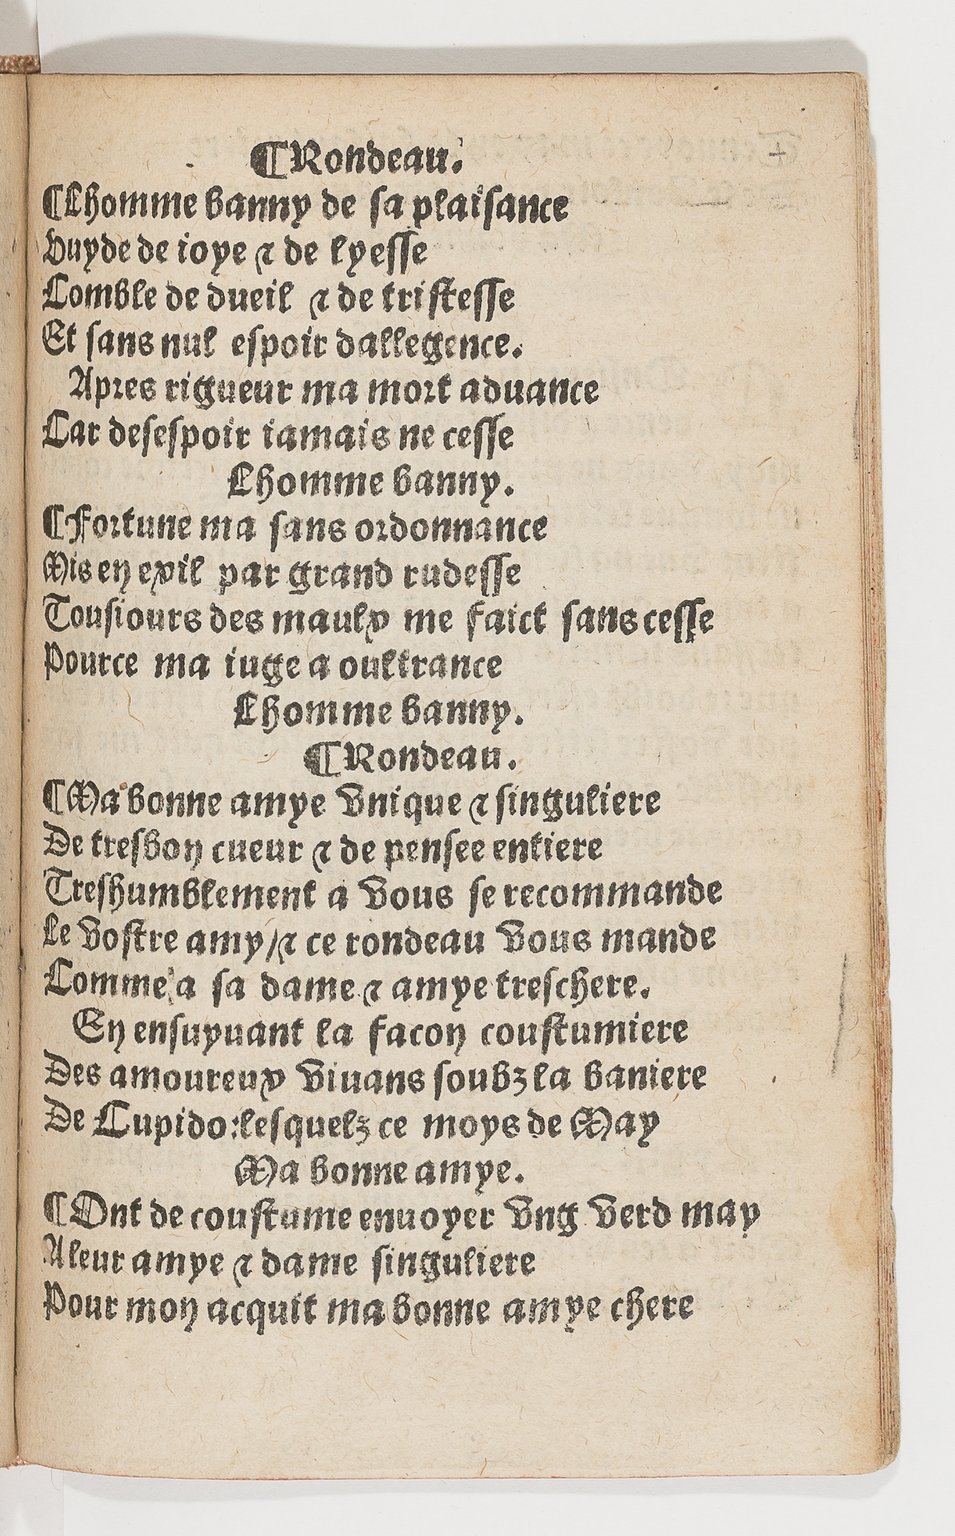 ¶Rondeau.
¶Lhomme banny de sa plaisance
Vuyde de ioye ⁊ de lyesse
Comble de dueil ⁊ de tristesse
Et sans nul espoir dallegence.
Apres rigueur ma mort aduance
Car desespoir iamais ne cesse
Lhomme banny.
¶Fortune ma sans ordonnance
Mis en exil par grand rudesse
Tousiours des maulx me faict sans cesse
Pource ma iuge a oultrance
Lhomme banny.
¶Rondeau.
¶Ma bonne amye vnique ⁊ singuliere
De tresbon cueur ⁊ de pensee entiere
Treshumblement a vous se recommande
Le vostre amy/⁊ ce rondeau vous mande
Comme a sa dame ⁊ amye treschere.
En ensuyuant la facon coustumiere
Des amoureux viuans soubz la baniere
De Cupido:lesquelz ce moys de May
Ma bonne amye.
¶Ont de coustume enuoyer vng verd may
A leur amye ⁊ dame singuliere
Pour mon acquit ma bonne amye chere